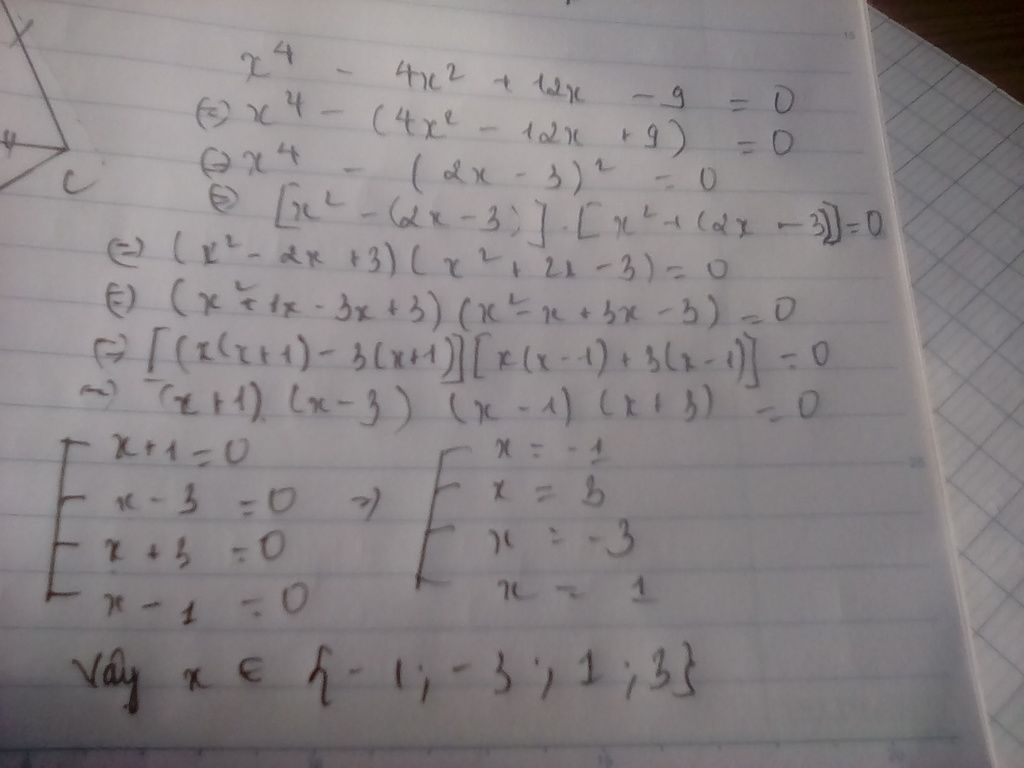 x⁴ - 4x² + 12x - 9 = 0
(=) x⁴ - (4x² - 12x + 9) = 0
(=) x⁴ - (2x - 3)² = 0
(=) [x² - (2x - 3)] . [x² + (2x - 3)] = 0
(=) (x² - 2x + 3) (x² + 2x - 3) = 0
(=) (x² + 1x - 3x + 3) (x² - x + 3x - 3) = 0
(=) [(x(x+1) - 3(x+1)] [x(x-1) + 3(x-1)] = 0
=) (x+1) (x-3) (x-1) (x+3) = 0
x+1 = 0 x = -1
x - 3 = 0 =) x = 3
x + 3 = 0 x = -3
x - 1 = 0 x = 1
Vậy x ∈ {-1; -3; 1; 3}
C